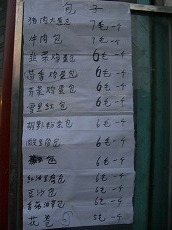 包 子
猪肉大葱包 7毛一个
牛肉包 7毛一个
韭菜鸡蛋 6毛一个
茴香鸡蛋包 6毛一个
芹菜鸡蛋包 6毛一个
雪里红包 6毛一个
胡萝卜粉条包 6毛一个
酸豆角包 6毛一个
包 6毛一个
包 6毛一个
豆沙包 6毛一个
包 6毛一个
花卷 5毛一个